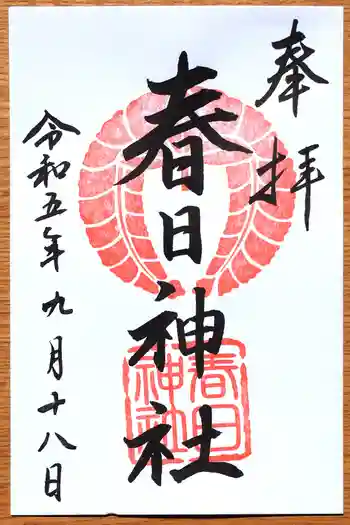 奉拝
春日神社
春日神社
令和五年九月十八日